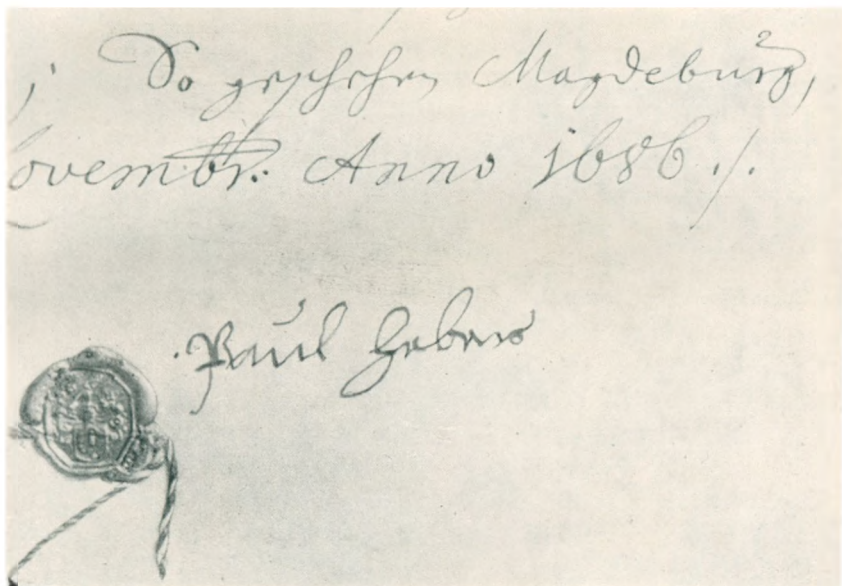 ; So geschehen Magdeburg,
ovembr: Anno 1686 ./.
Paul